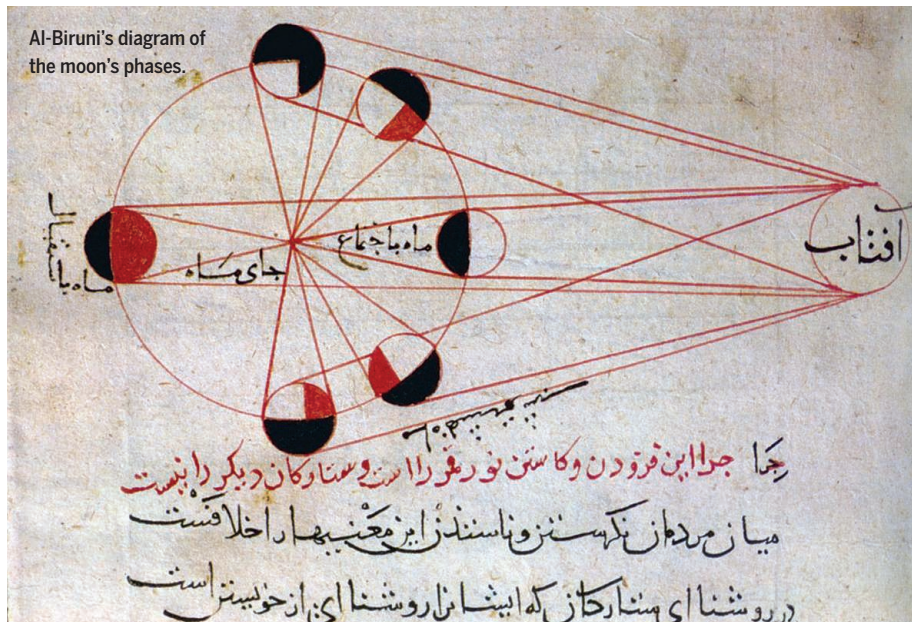 Al-Biruni's diagram of
the moon's phases.
افتاب
ماه باجتماع
جای ماه
ماه باستقبال
چرا چرا این فزودن و کاستن نور قمر را است و ستارکان دیکر را نیست
میان مردمان نکرستن و ناستدن این معنیها را خلافست
در روشنا ای ستارکان که ایشانرا روشنا ای از خویشتن است